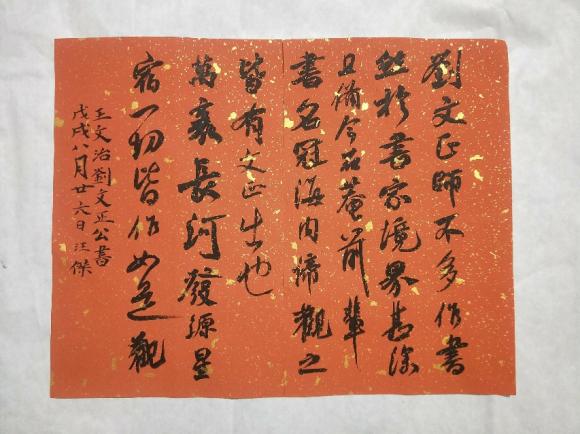 劉文正師不多作書
然於書家境界甚深
且今石菴前輩
書名冠海内諦觀之
皆有文正出也
萬裏長河發源星
宿一切皆作如是觀
王文治劉文正公書
戊戌八月廿六日汪傑